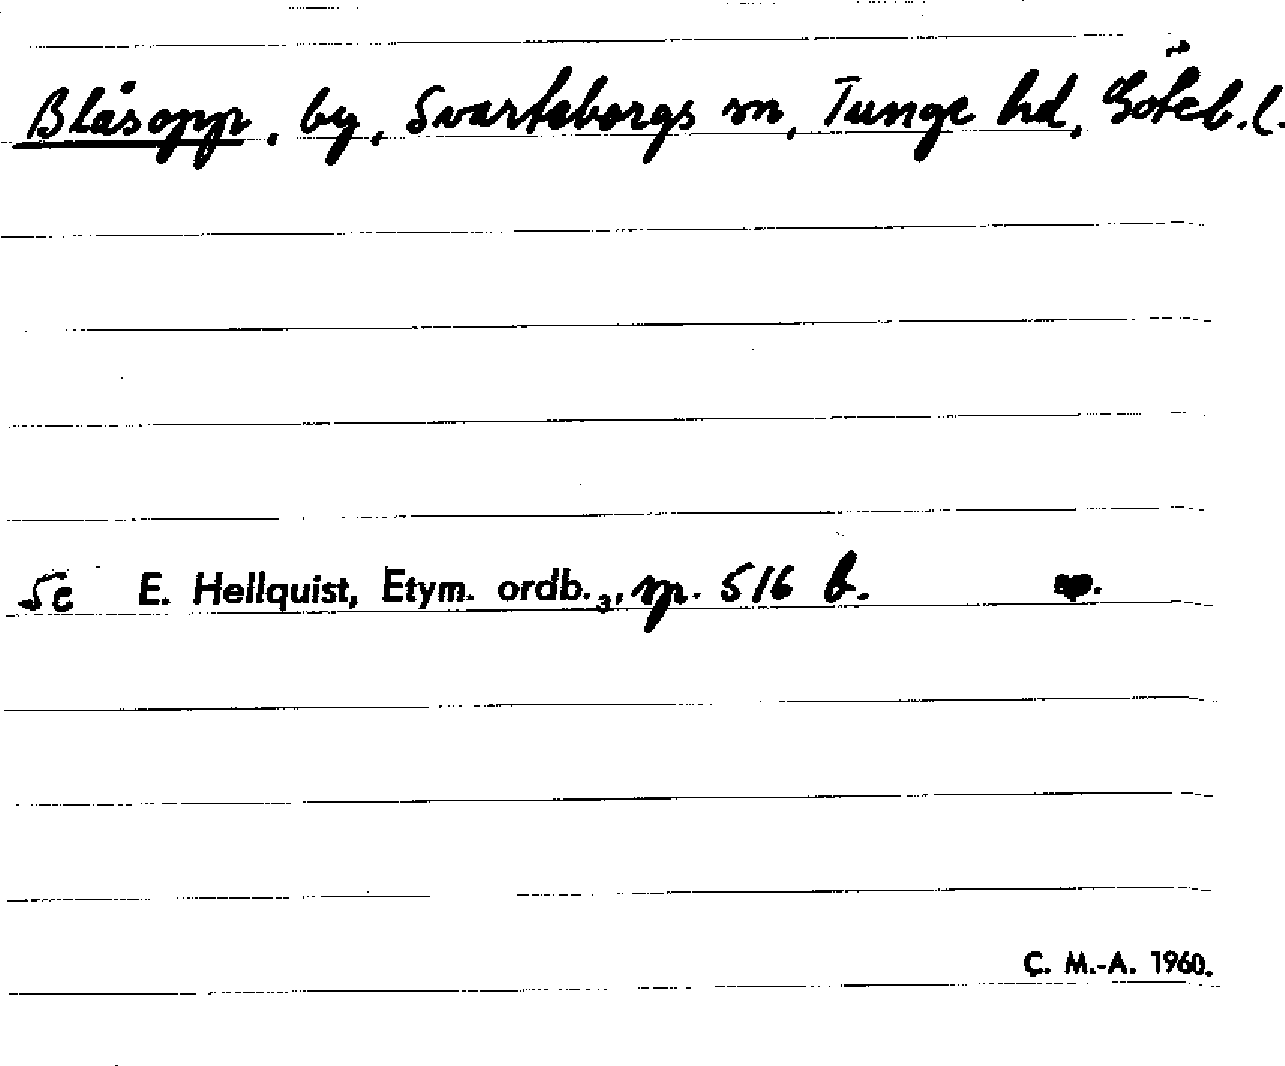 Blåsopp, by, Svarteborgs sn, Tunge hd, Göteb. l.
Se E. Hellquist, Etym. ordb.3, sp. 516 b.
C. M.-A. 1960.